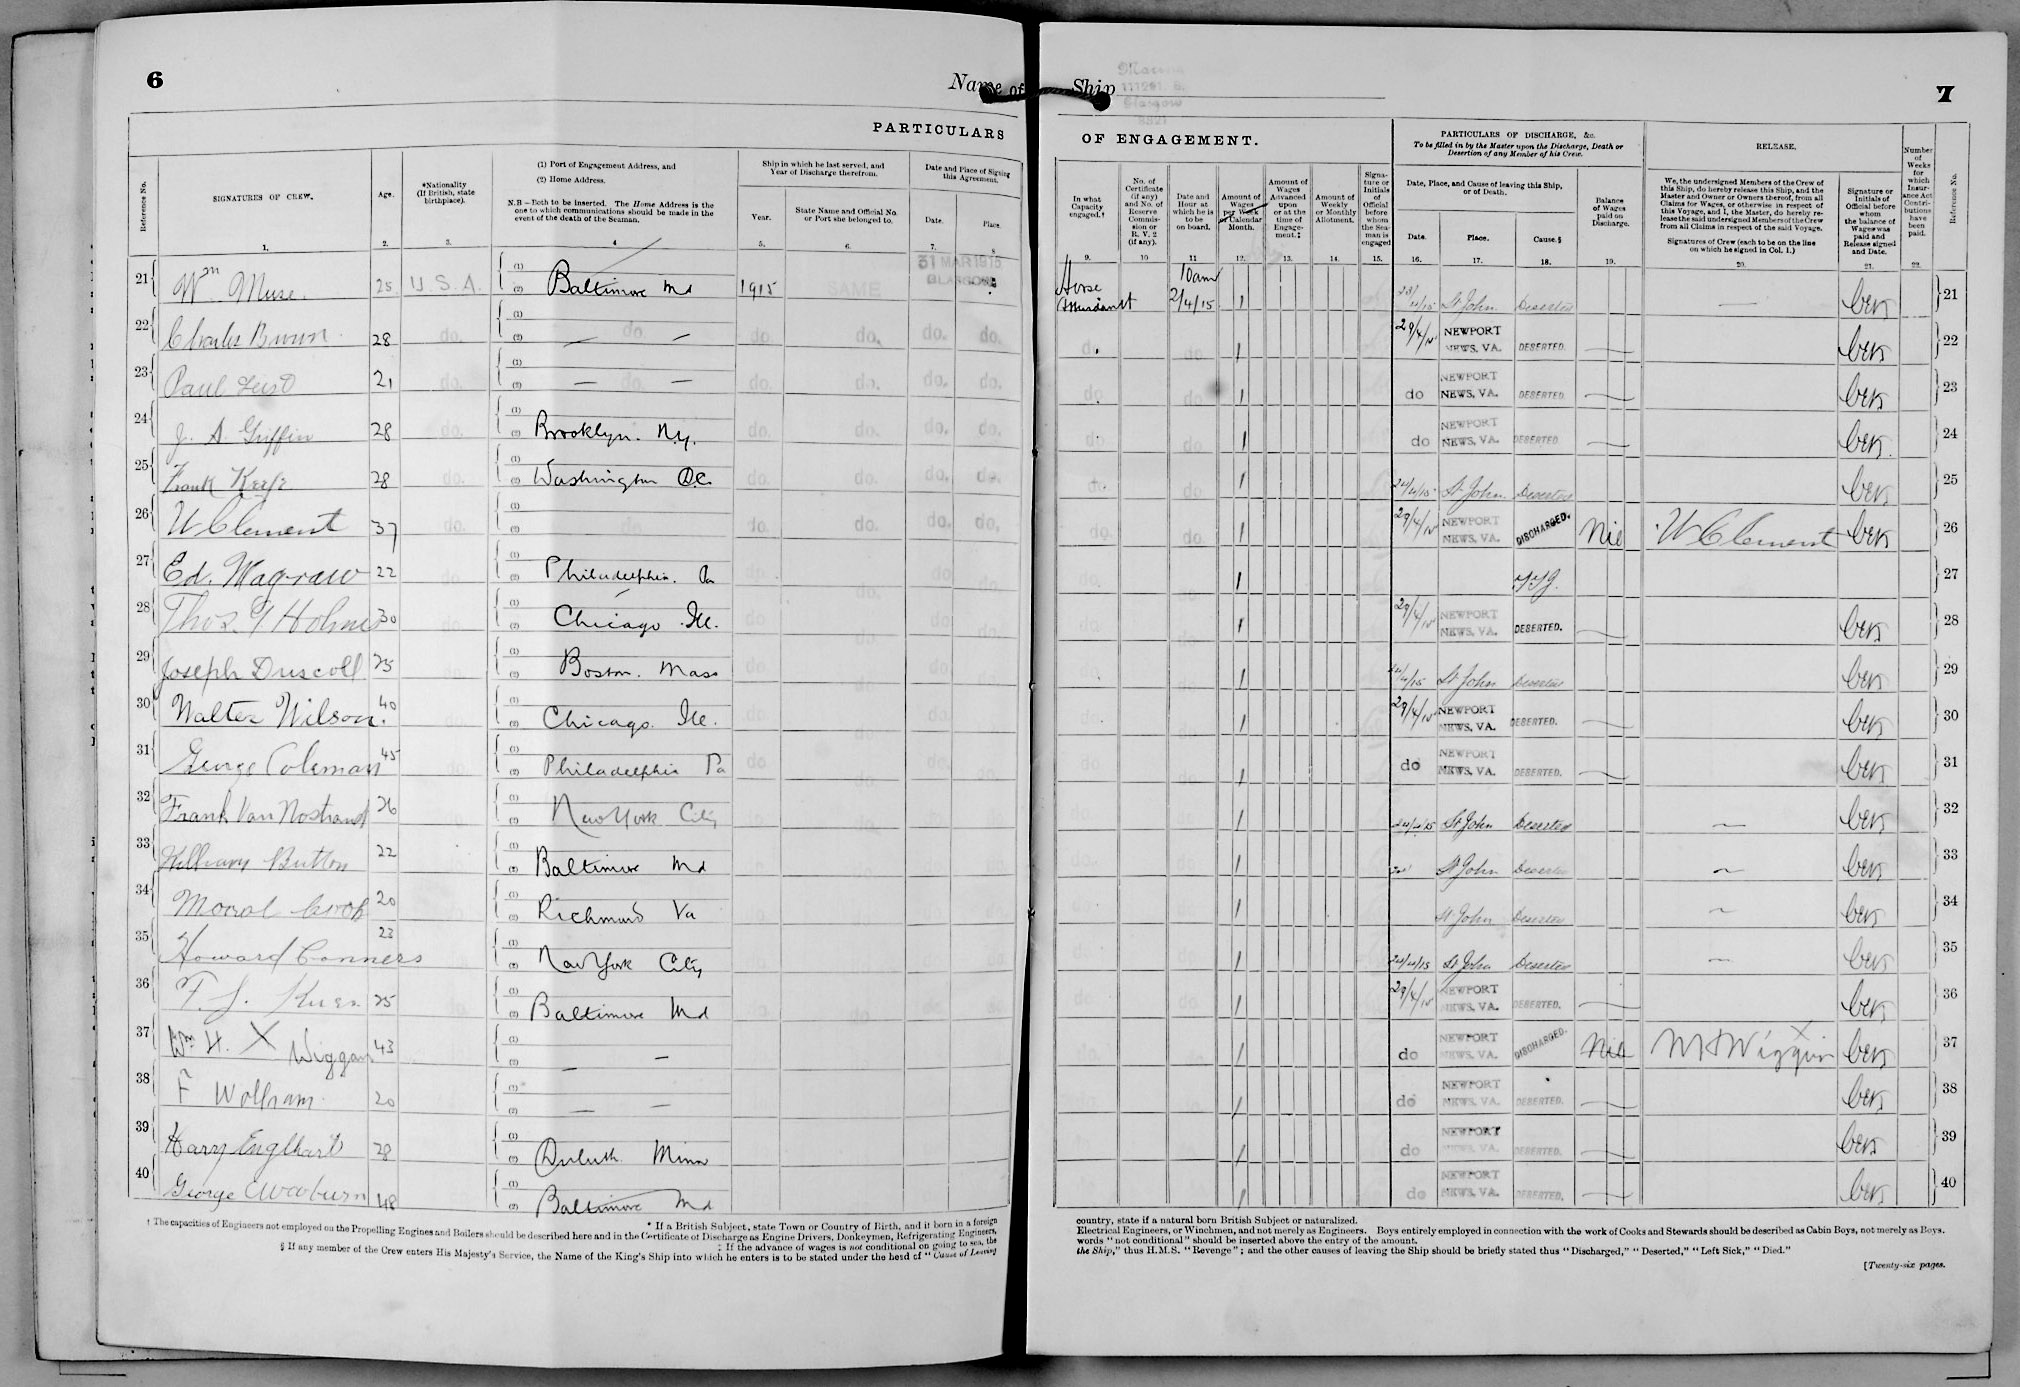 6
Name of Ship
111261. B.
Glasgow
7
PARTICULARS OF ENGAGEMENT.
PARTICULARS OF DISCHARGE, &c.
To be filled in by the Master upon the Discharge, Death or Desertion of any Member of his Crew.
RELEASE.
Reference No.
SIGNATURES OF CREW.
1.
Age.
2.
*Nationality (If British, state birthplace).
3.
(1) Port of Engagement Address, and
(2) Home Address.
N.B—Both to be inserted. The Home Address is the one to which communications should be made in the event of the death of the Seaman.
4
Ship in which he last served, and Year of Discharge therefrom.
Year.
5.
State Name and Official No. or Port she belonged to.
6.
Date and Place of Signing this Agreement.
Date.
7.
Place.
8
In what Capacity engaged.†
9.
No. of Certificate (if any) and No. of Reserve Commission or R. V. 2 (if any).
10
Date and Hour at which he is to be on board.
11
Amount of Wages per Week or Calendar Month.
12.
Amount of Wages Advanced upon or at the time of Engagement.‡
13.
Amount of Weekly or Monthly Allotment.
14.
Signature or Initials of Official before whom the Seaman is engaged
15.
Date, Place, and Cause of leaving this Ship, or of Death.
Date.
16.
Place.
17.
Cause.§
18.
Balance of Wages paid on Discharge.
19.
We, the undersigned Members of the Crew of this Ship, do hereby release this Ship, and the Master and Owner or Owners thereof, from all Claims for Wages, or otherwise in respect of this Voyage, and I, the Master, do hereby release the said undersigned Members of the Crew from all Claims in respect of the said Voyage.
Signatures of Crew (each to be on the line on which he signed in Col. 1.)
20.
Signature or Initials of Official before whom the balance of Wages was paid and Release signed and Date.
21.
Number of Weeks for which Insurance Act Contributions have been paid.
22.
Reference No.
21 Wm Muse. 25 U.S.A. (1) (2) Baltimore Md 1915 SAME 31 MAR 1915 GLASGOW Horse Attendant 10am 2/4/15 1 St John Deserted 21
22 Charles Brown 28 do. (1) (2) — do. — do. do. do. do. do. do. 1 29/4/15 NEWPORT NEWS, VA. DESERTED. 22
23 Paul 21 do. (1) (2) — do. — do. do. do. do. do. do. 1 do NEWPORT NEWS, VA. DESERTED. 23
24 J. A. Griffin 28 do. (1) (2) Brooklyn. N.y. do. do. do. do. do. do. 1 do NEWPORT NEWS, VA. DESERTED. 24
25 Frank 28 do. (1) (2) Washington D.C. do. do. do. do. do. do. 1 24/4/15 St John Deserted 25
26 W Clement 37 do. (1) (2) do. do. do. do. do. do. 1 29/4/15 NEWPORT NEWS, VA. DISCHARGED. Nil W Clement 26
27 Ed. Magraw 22 do. (1) (2) Philadelphia. Pa do do do do. do 1 27
28 Thos. 30 do. (1) (2) Chicago Ill. do do do do. do. do. 1 29/4/15 NEWPORT NEWS, VA. DESERTED. 28
29 Joseph Driscoll 25 (1) (2) Boston. Mass do. do. do. do. do. do. 1 24/4/15 St John Deserted 29
30 Walter Wilson. 40 (1) (2) Chicago. Ill. do. do. do. do. do. 1 29/4/15 NEWPORT NEWS, VA. DESERTED. 30
31 George Coleman 45 do. (1) (2) Philadelphia Pa do do. do do. do do. 1 do NEWPORT NEWS, VA. DESERTED. 31
32 Frank Van Nostrand 26 (1) (2) New York City do do. do do. do. 1 24/4/15 St John Deserted 32
33 William Button 22 (1) (2) Baltimore Md do do. do do. do. 1 St John Deserted 33
34 20 (1) (2) Richmond Va do do. do. 1 St John Deserted 34
35 Howard Conners 23 (1) (2) New York City do. do do. do. 1 24/4/15 St John Deserted 35
36 25 (1) (2) Baltimore Md do. do do. 1 29/4/15 NEWPORT NEWS, VA. DESERTED. 36
37 Wm H. X Wiggan 43 (1) (2) — — 1 do NEWPORT NEWS, VA. DISCHARGED. Nil W H X Wiggin 37
38 F Wolfram. 20 (1) (2) — — 1 do NEWPORT NEWS, VA. DESERTED. 38
39 Harry Englhart 28 (1) (2) Duluth Minn 1 do NEWPORT NEWS, VA. DESERTED. 39
40 George 48 (1) (2) Baltimore Md 1 do NEWPORT NEWS, VA. DESERTED. 40
* If a British Subject, state Town or Country of Birth, and if born in a foreign country, state if a natural born British Subject or naturalized.
† The capacities of Engineers not employed on the Propelling Engines and Boilers should be described here and in the Certificate of Discharge as Engine Drivers, Donkeymen, Refrigerating Engineers, Electrical Engineers, or Winchmen, and not merely as Engineers. Boys entirely employed in connection with the work of Cooks and Stewards should be described as Cabin Boys, not merely as Boys.
‡ If the advance of wages is not conditional on going to sea, the words "not conditional" should be inserted above the entry of the amount.
§ If any member of the Crew enters His Majesty's Service, the Name of the King's Ship into which he enters is to be stated under the head of "Cause of Leaving the Ship," thus H.M.S. "Revenge"; and the other causes of leaving the Ship should be briefly stated thus "Discharged," "Deserted," "Left Sick," "Died."
[Twenty-six pages.